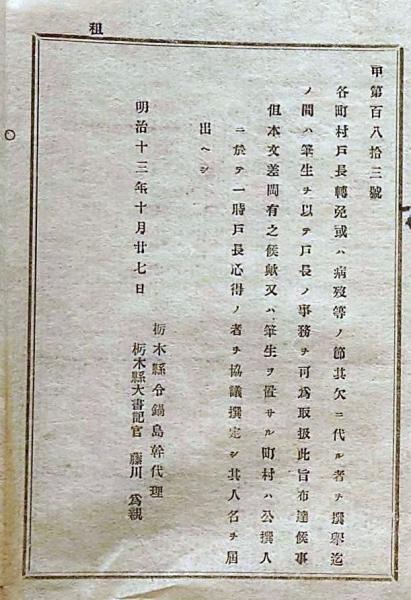 租
甲第百八拾三號
各町村戸長轉免或ハ病歿等ノ節其欠ニ代ル者ヲ撰擧迄
ノ間ハ筆生ヲ以テ戸長ノ事務ヲ可爲取扱此旨布達候事
但本文差問有之候歟又ハ筆生ヲ置サル町村ハ公撰人
ニ於テ一時戸長心得ノ者ヲ協議撰定シ其人名ヲ屆
出ヘシ
明治十三年十月廿七日
栃木縣令鍋島幹代理
栃木縣大書記官 藤川爲親